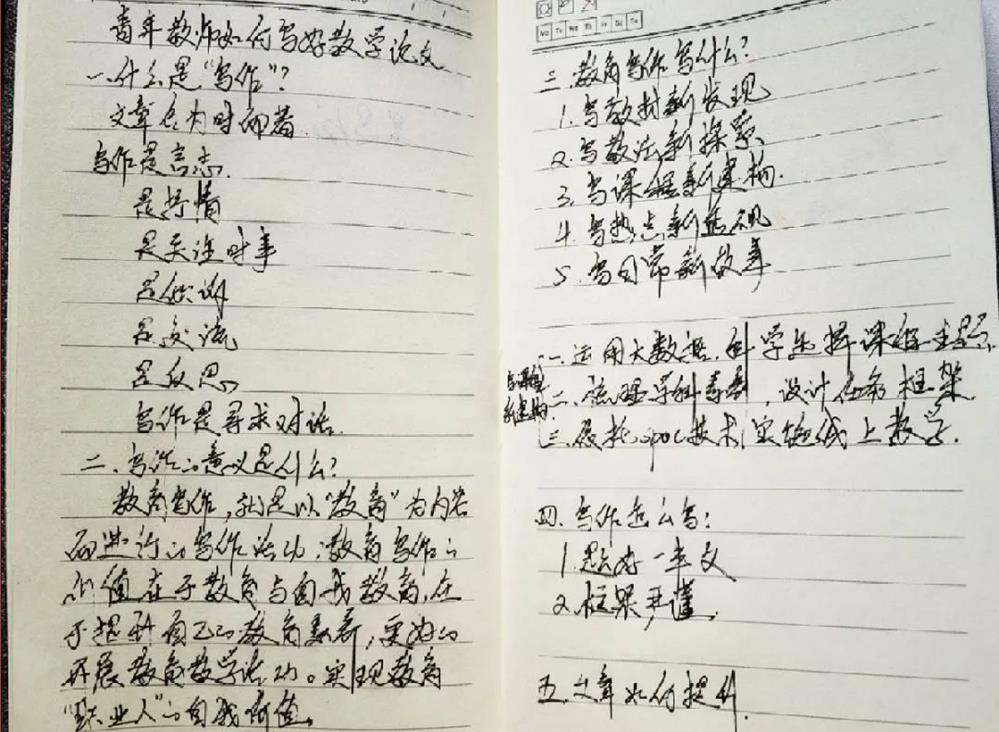 青年教师如何写好教学论文
一.什么是“写作”?
文章合为时而著.
写作是言志.
是抒情
是关注时事
是参谋
是交流
是反思
写作是寻求对话.
二.写作的意义是什么?
教育写作,就是以“教育”为内容
而进行的写作活动.教育写作的
价值在于教育与自我教育,在
于提升自己的教育素养,更好的
开展教育教学活动。实现教育
“职业人”的自我价值。
Mo Tu We Th Fr Sa Su
三.教育写作写什么?
1.写教材新发现
2.写教法新探索
3.写课程新建构.
4.写热点新
5.写日常新故事
一.运用大数据.科学选择课程主题.
写课程
新建构
二.梳理学科,设计任务框架
三.依托spoc技术,实施线上教学.
四.写作怎么写:
1.题好一半文
2.框架严谨.
五.文章如何提升.